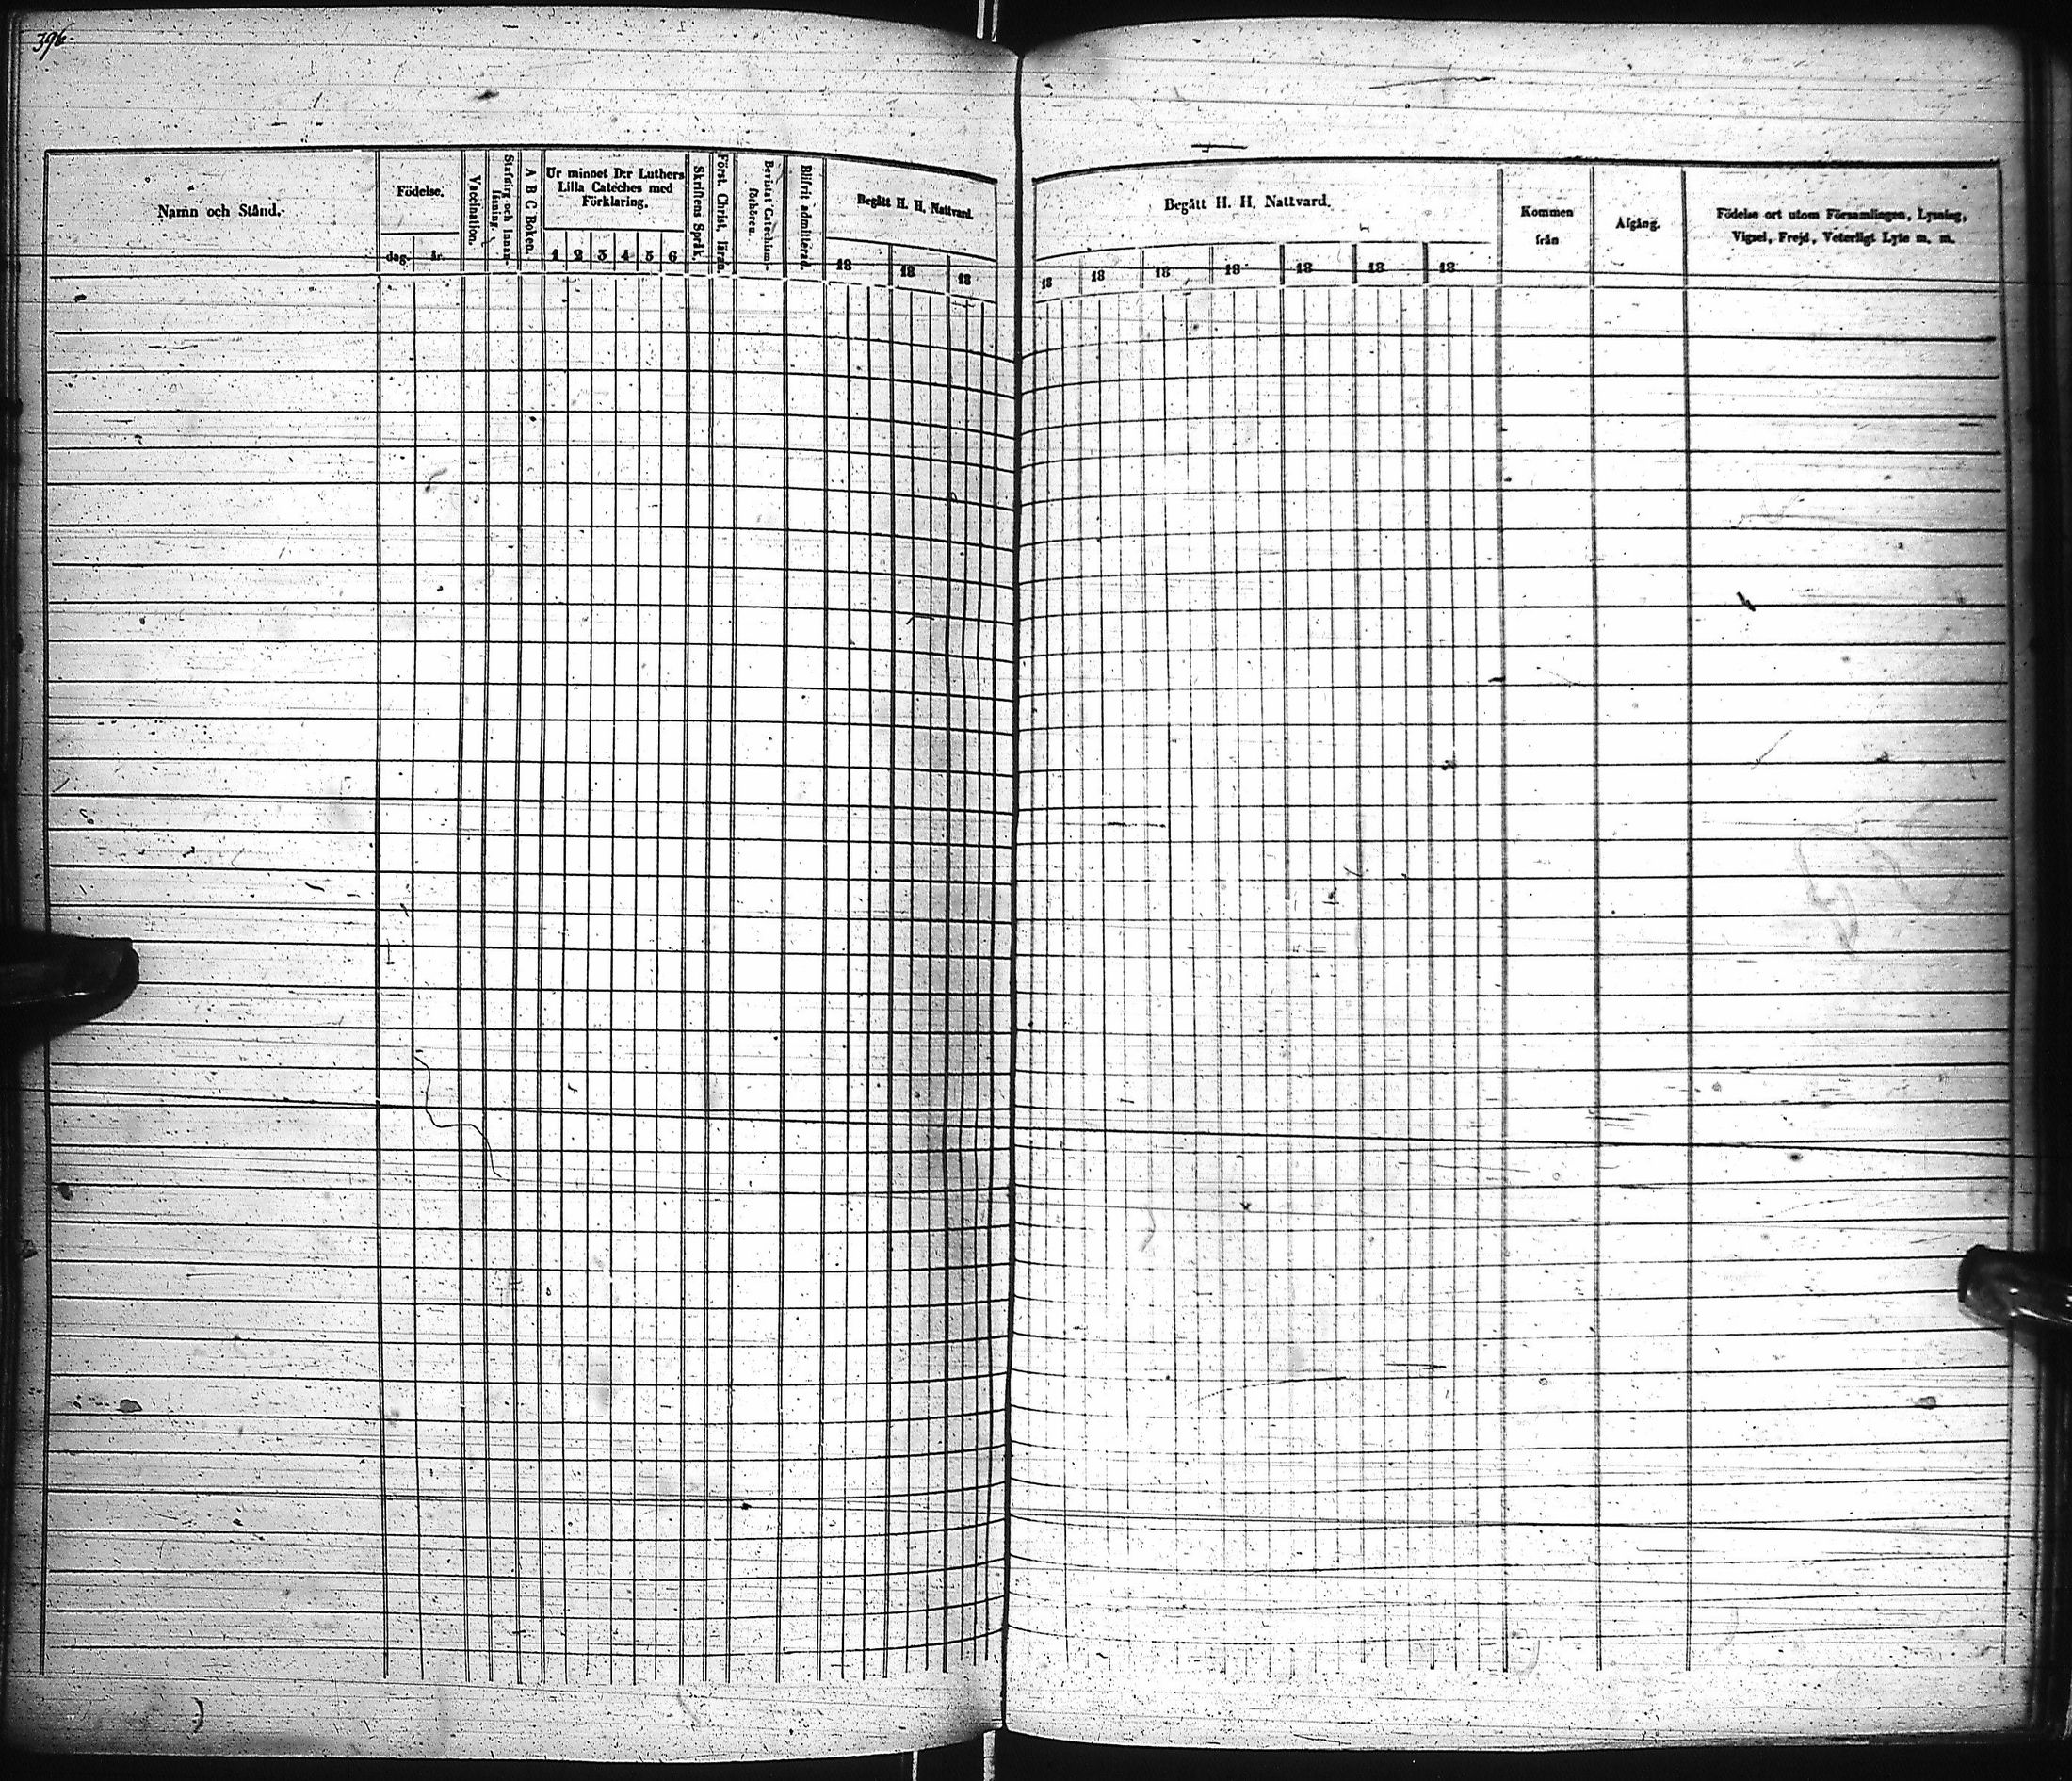 396.
Namn och Stånd.
Födelse.
dag.
år.
Vaccination.
Stafning och Innan-
läsning.
A B C Boken.
Ur minnet D:r Luthers
Lilla Cateches med
Förklaring.
1 2 3 4 5 6
Skriftens Språk.
Först. Christ. läran.
Bevistat Catechism-
förhören.
Blifvit admitterad.
Begått H. H. Nattvard.
18 18 18
Begått H. H. Nattvard.
18 18 18 18 18 18 18
Kommen
från
Afgång.
Födelse ort utom Församlingen, Lysning,
Vigsel, Frejd, Veterligt Lyte m. m.